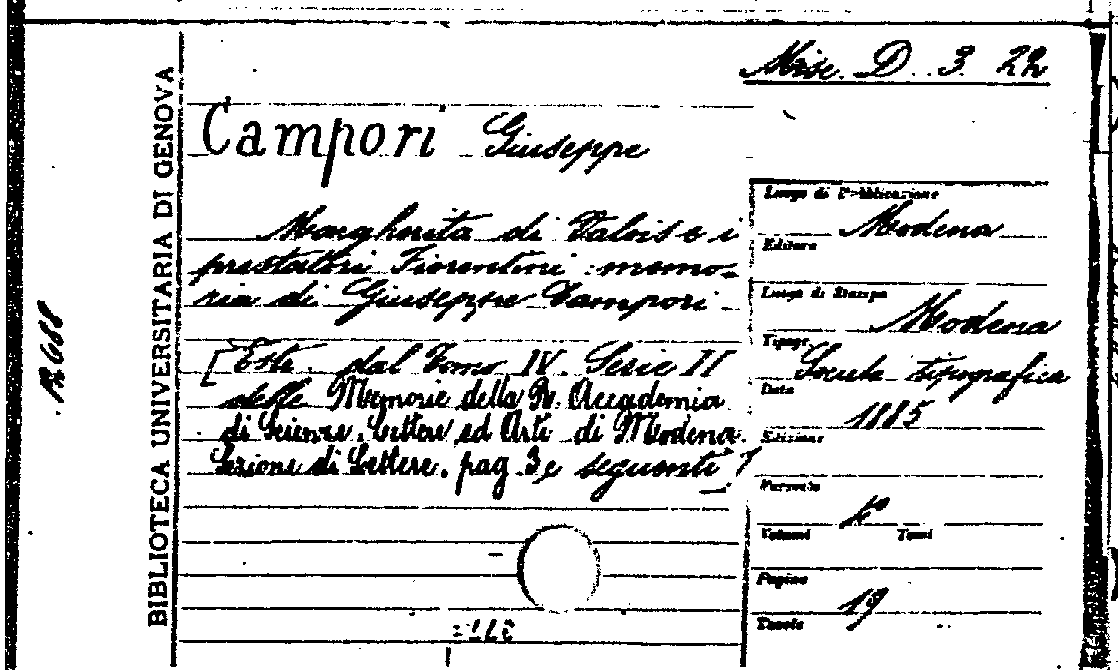 Misc. D. 3. 22
Campori Giuseppe
Margherita di Valois e i
prestatori Fiorentini: memo-
ria di Giuseppe Campori.
[Estr. dal Tomo IV. Serie II
delle Memorie della R. Accademia
di Scienze, Lettere ed Arti di Modena.
Sezione di Lettere, pag. 3 e seguenti]
Luogo di Pubblicazione
Modena
Editore
Luogo di Stampa
Modena
Tipogr.
Società tipografica
Data
1885
Edizione
Formato
4°
Volumi Tomi
Pagine
19
Tavole
BIBLIOTECA UNIVERSITARIA DI GENOVA